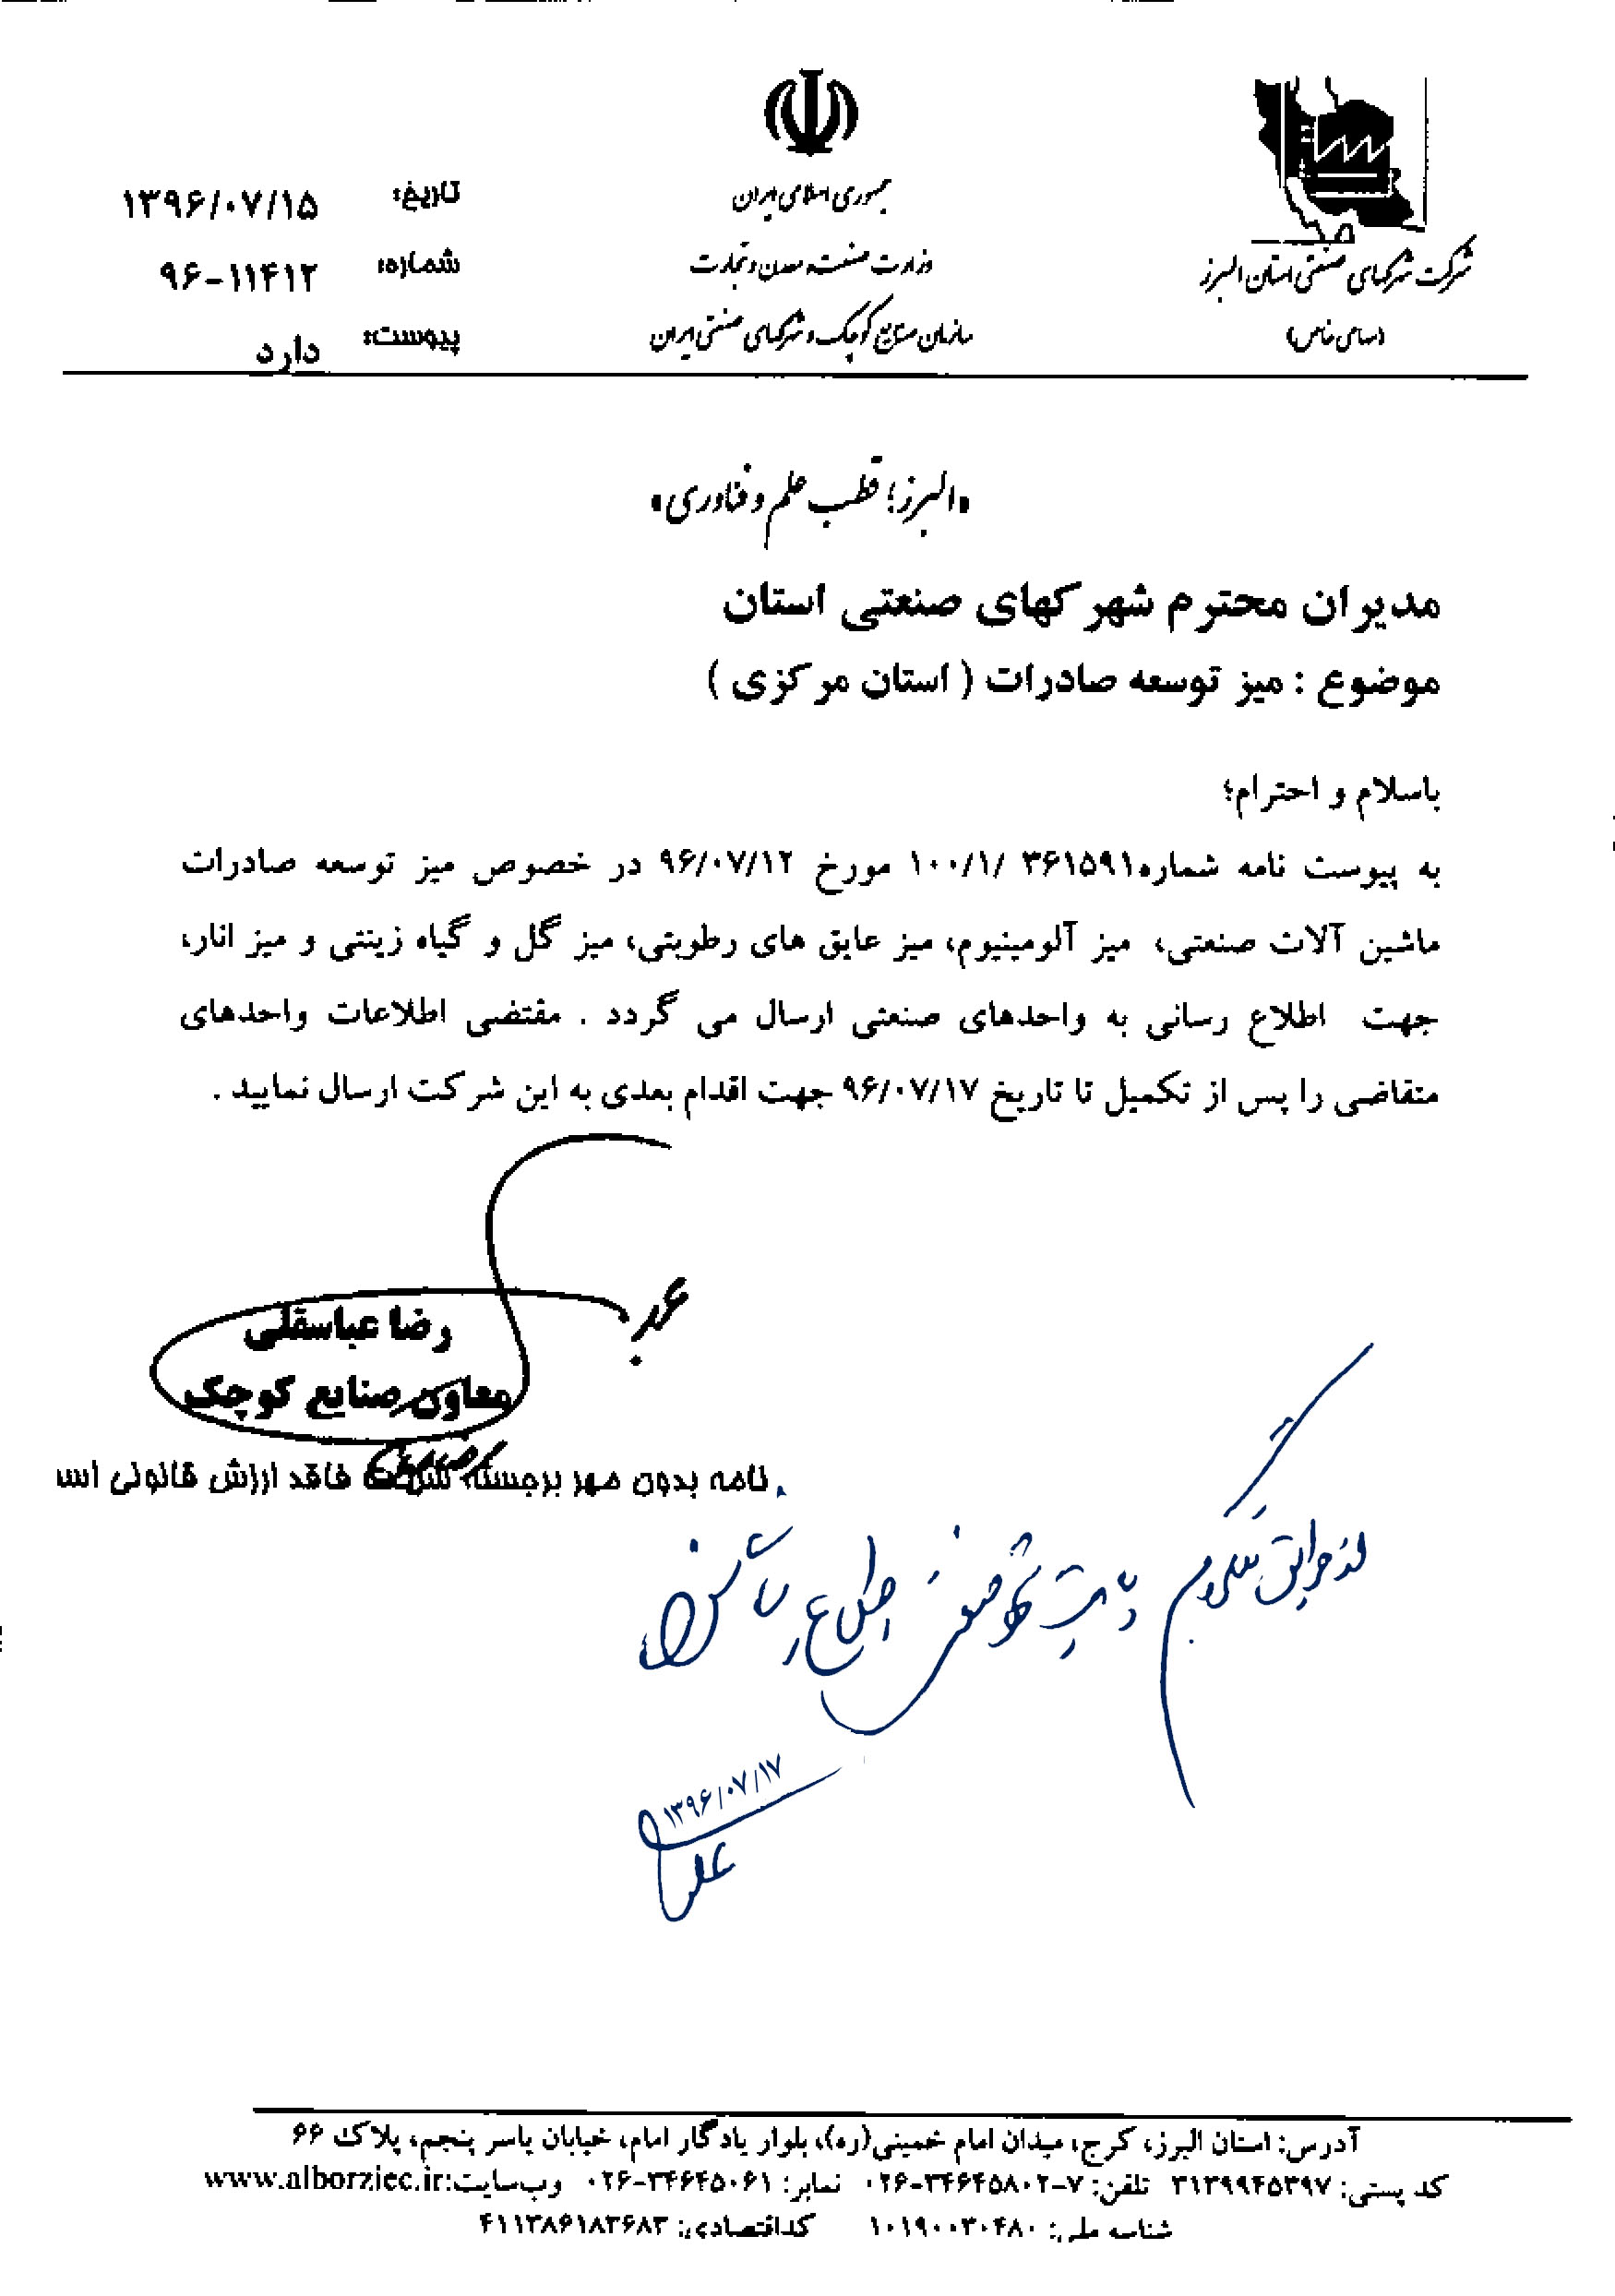 شرکت شهرکهای صنعتی استان البرز
(سهامی خاص)
جمهوری اسلامی ایران
وزارت صنعت، معدن و تجارت
سازمان صنایع کوچک و شهرکهای صنعتی ایران
تاریخ: ۱۳۹۶/۰۷/۱۵
شماره: ۹۶-۱۱۴۱۲
پیوست: دارد
«البرز؛ قطب علم و فناوری»
مدیران محترم شهرکهای صنعتی استان
موضوع : میز توسعه صادرات ( استان مرکزی )
باسلام و احترام؛
به پیوست نامه شماره۳۶۱۵۹۱ /۱۰۰/۱ مورخ ۹۶/۰۷/۱۲ در خصوص میز توسعه صادرات
ماشین آلات صنعتی، میز آلومینیوم، میز عایق های رطوبتی، میز گل و گیاه زینتی و میز انار،
جهت اطلاع رسانی به واحدهای صنعتی ارسال می گردد . مقتضی اطلاعات واحدهای
متقاضی را پس از تکمیل تا تاریخ ۹۶/۰۷/۱۷ جهت اقدام بعدی به این شرکت ارسال نمایید .
رضا عباسقلی
معاون صنایع کوچک
نامه بدون مهر برجسته شرکت فاقد ارزش قانونی اس
از طریق تلگرام صنعتی اطلاع
۱۳۹۶/۰۷/۱۷
آدرس: استان البرز، کرج، میدان امام خمینی(ره)، بلوار یادگار امام، خیابان یاسر پنجم، پلاک ۶۶
کد پستی: ۳۱۳۹۹۴۵۳۹۷ تلفن: ۷-۳۴۶۴۵۸۰۲-۰۲۶ نمابر: ۳۴۶۴۵۰۶۱-۰۲۶ وب‌سایت:www.alborziec.ir
شناسه ملی: ۱۰۱۹۰۰۳۰۴۸۰ کداقتصادی: ۴۱۱۳۸۶۱۸۳۶۸۳